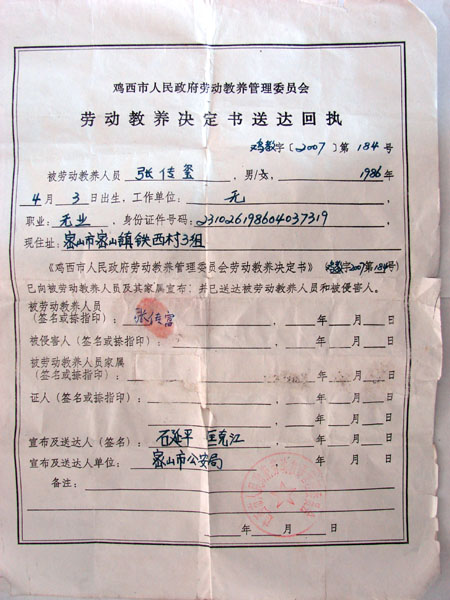 鸡西市人民政府劳动教养管理委员会
劳动教养决定书送达回执
鸡教字〔2007〕第 184 号
被劳动教养人员 张传玺 ，男/女， 1986 年
4 月 3 日出生，工作单位： 无
职业：无业，身份证件号码：231026198604037319
现住址：密山市密山镇铁西村3组
《鸡西市人民政府劳动教养管理委员会劳动教养决定书》（鸡教字2007第184号）
已向被劳动教养人员及其家属宣布，并已送达被劳动教养人员和被侵害人。
被劳动教养人员
（签名或捺指印）： 年 月 日
被侵害人（签名或捺指印）： 年 月 日
被劳动教养人员家属
（签名或捺指印）： 年 月 日
证人（签名或捺指印）： 年 月 日
年 月 日
宣布及送达人（签名）： 石延平 匡克江 ， 年 月 日
宣布及送达人单位： 密山市公安局 ， 年 月 日
备注：
年 月 日